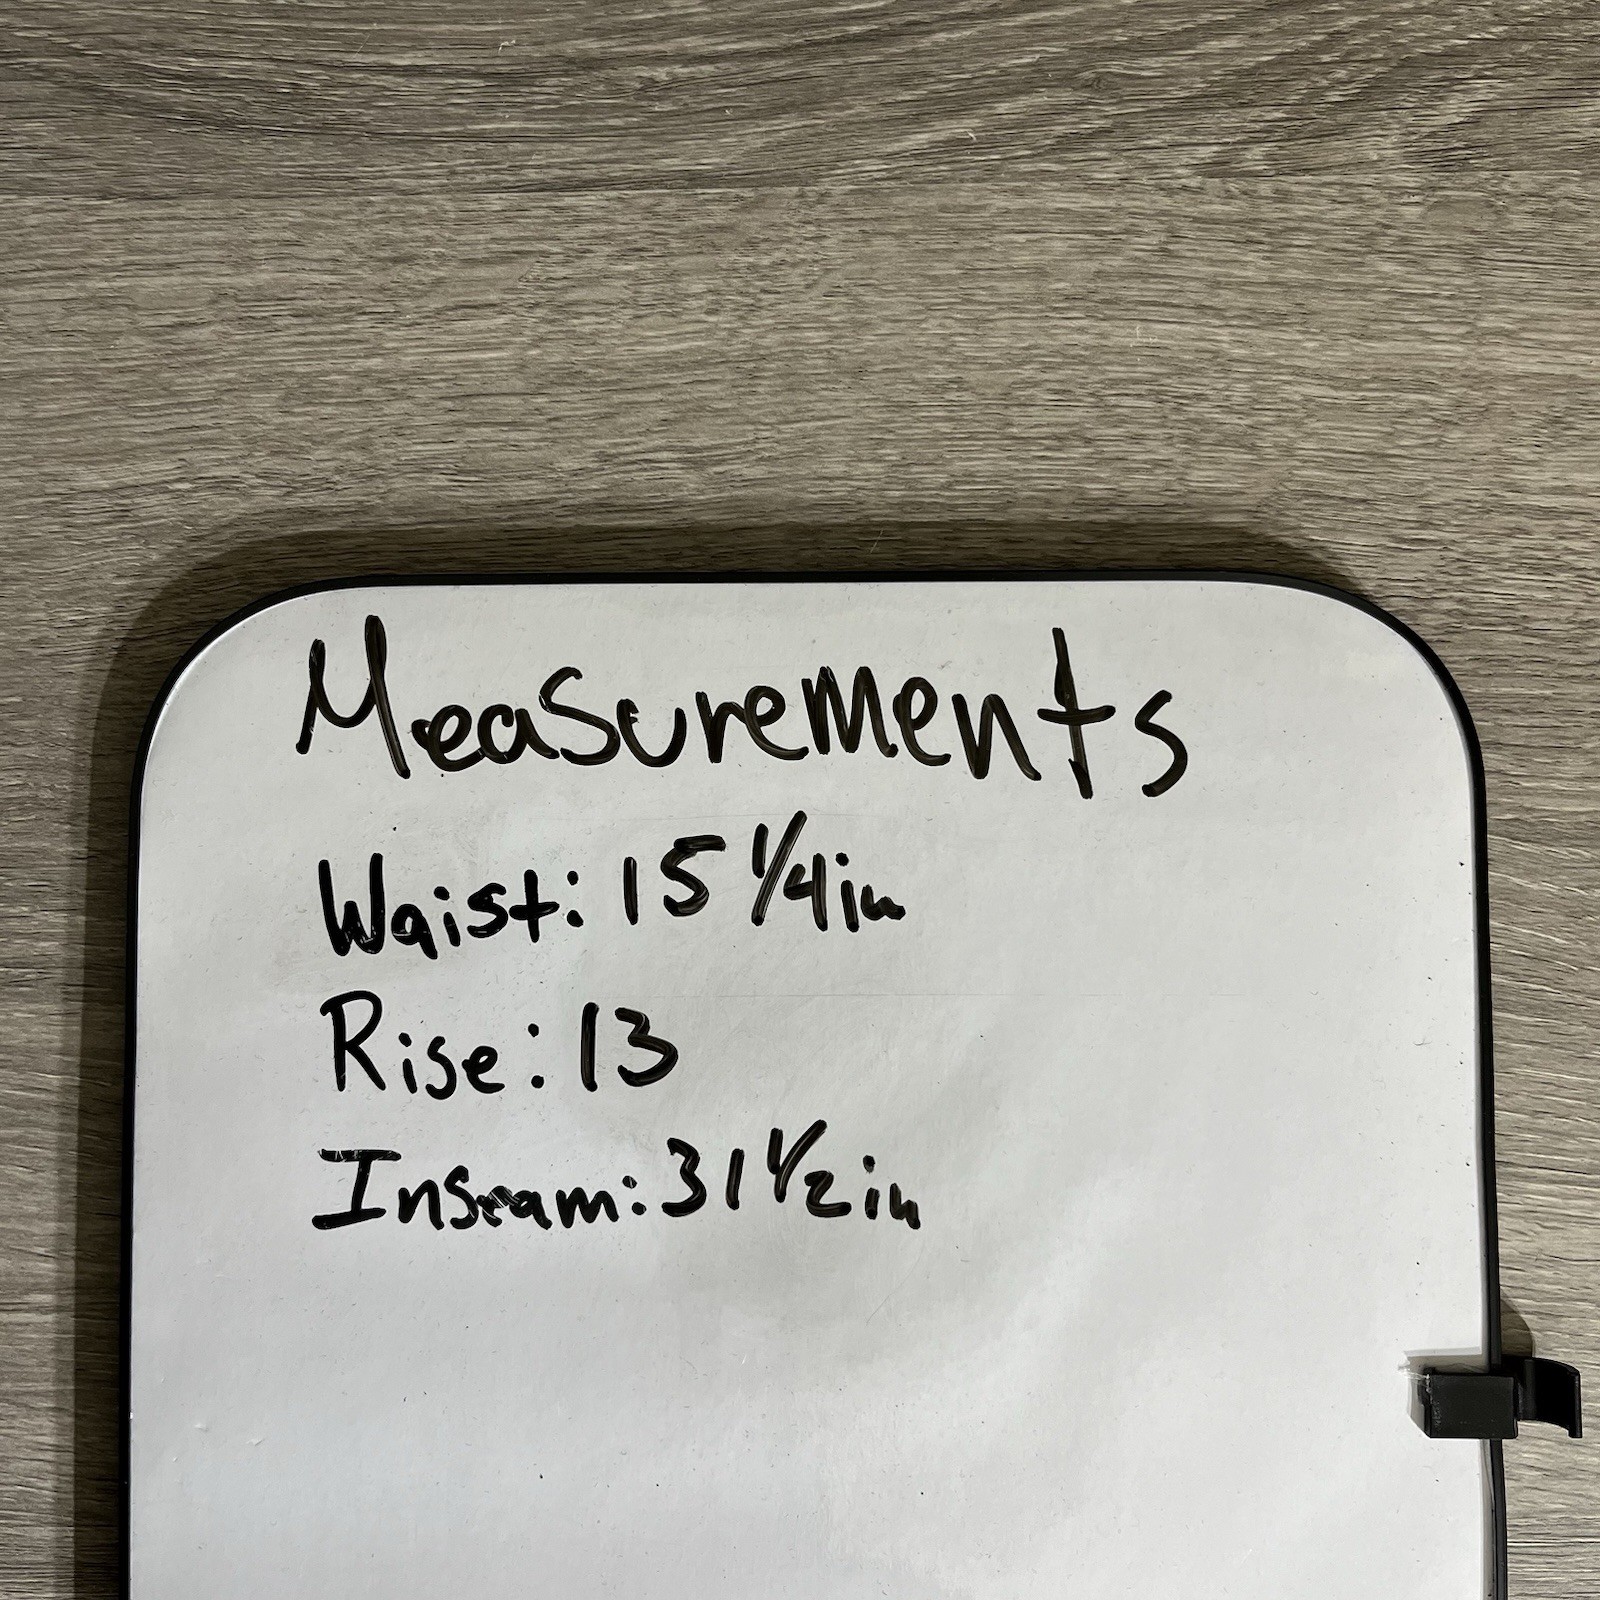 Measurements
Waist: 15 1/4in
Rise: 13
Inseam: 31 1/2in